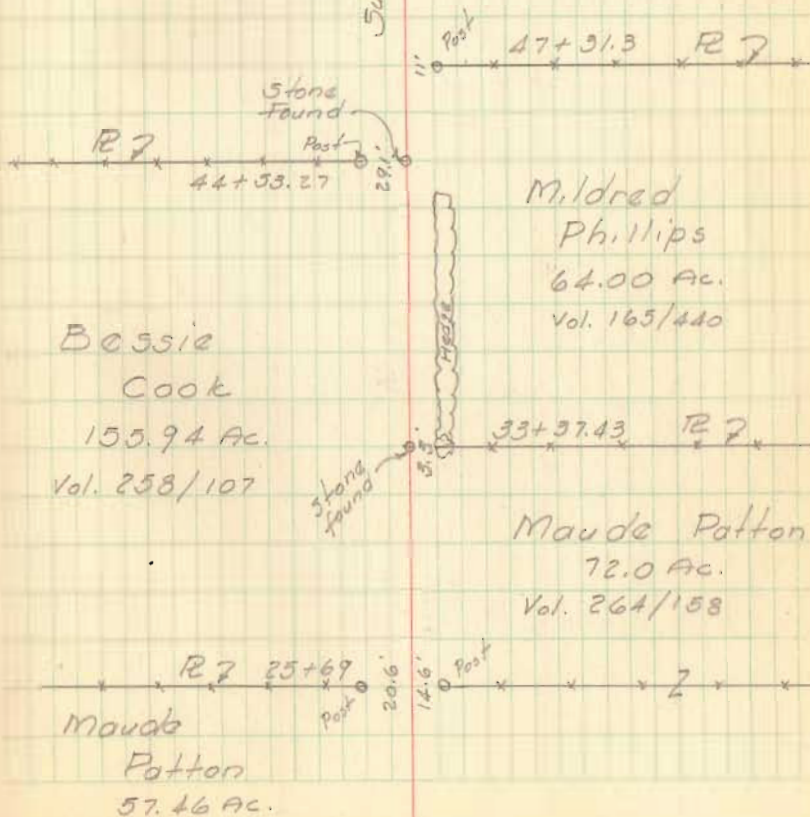 Post
47+31.3 PL ?
11'
Stone
Found
PL ? Post
44+53.27
29.1'
Mildred
Phillips
64.00 Ac.
Vol. 165/440
Hedge
Bessie
Cook
155.94 Ac.
Vol. 258/107
33+37.43 PL ?
5.5'
Stone
found
Maude Patton
72.0 Ac.
Vol. 264/158
PL ? 25+69
Post
20.6'
14.6'
Post
?
Maude
Patton
57.46 Ac.